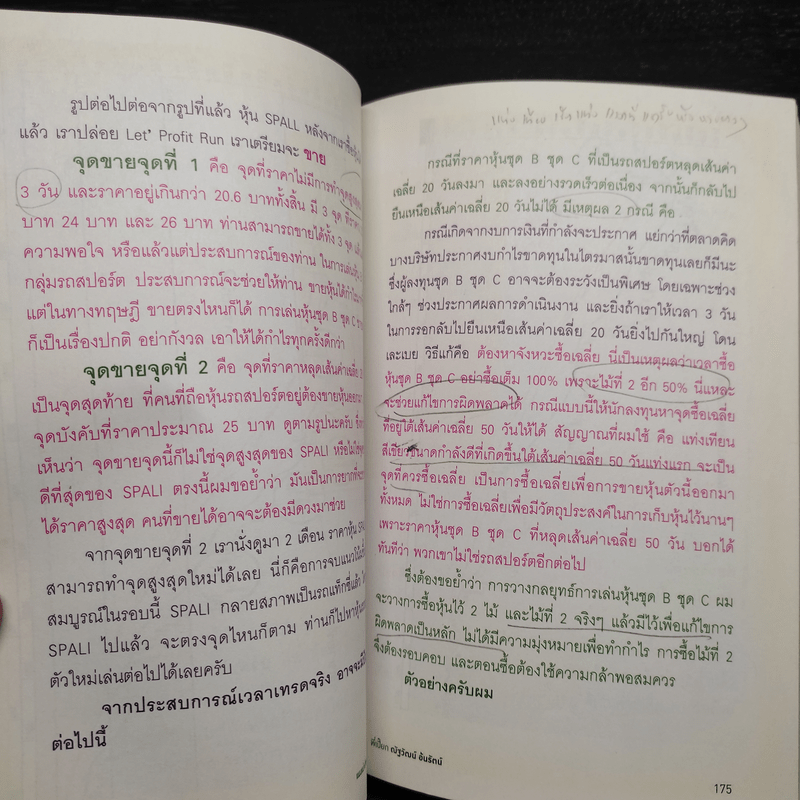 รูปต่อไปต่อจากรูปที่แล้ว หุ้น SPALL หลังจากเราซื้อหุ้น
แล้ว เราปล่อย Let' Profit Run เราเตรียมจะ ขาย
จุดขายจุดที่ 1 คือ จุดที่ราคาไม่มีการทำจุดสูงสุด
3 วัน และราคาอยู่เกินกว่า 20.6 บาททั้งสิ้น มี 3 จุด ที่ราคา
บาท 24 บาท และ 26 บาท ท่านสามารถขายได้ทั้ง 3 จุด
ความพอใจ หรือแล้วแต่ประสบการณ์ของท่าน ในการเล่นหุ้น
กลุ่มรถสปอร์ต ประสบการณ์จะช่วยให้ท่าน ขายหุ้นได้กำไร
แต่ในทางทฤษฎี ขายตรงไหนก็ได้ การเล่นหุ้นชุด B ชุด C
ก็เป็นเรื่องปกติ อย่ากังวล เอาให้ได้กำไรทุกครั้งดีกว่า
จุดขายจุดที่ 2 คือ จุดที่ราคาหลุดเส้นค่าเฉลี่ย
เป็นจุดสุดท้าย ที่คนที่ถือหุ้นรถสปอร์ตอยู่ต้องขายหุ้นออก
จุดบังคับที่ราคาประมาณ 25 บาท ดูตามรูปนะครับ
เห็นว่า จุดขายจุดนี้ก็ไม่ใช่จุดสูงสุดของ SPALI หรือไม่ใช่
ดีที่สุดของ SPALI ตรงนี้ผมขอย้ำว่า มันเป็นการยากที่จะ
ได้ราคาสูงสุด คนที่ขายได้อาจจะต้องมีดวงมาช่วย
จากจุดขายจุดที่ 2 เรานั่งดูมา 2 เดือน ราคาหุ้น
สามารถทำจุดสูงสุดใหม่ได้เลย นี่ก็คือการจบแนวโน้ม
สมบูรณ์ในรอบนี้ SPALI กลายสภาพเป็นรถแท็กซี่แล้ว
SPALI ไปแล้ว จะตรงจุดไหนก็ตาม ท่านก็ไปหาหุ้น
ตัวใหม่เล่นต่อไปได้เลยครับ
จากประสบการณ์เวลาเทรดจริง อาจจะมี
ต่อไปนี้
กรณีที่ราคาหุ้นชุด B ชุด C ที่เป็นรถสปอร์ตหลุดเส้นค่า
เฉลี่ย 20 วันลงมา และลงอย่างรวดเร็วต่อเนื่อง จากนั้นก็กลับไป
ยืนเหนือเส้นค่าเฉลี่ย 20 วันไม่ได้ มีเหตุผล 2 กรณี คือ
กรณีเกิดจากงบการเงินที่กำลังจะประกาศ แย่กว่าที่ตลาดคิด
บางบริษัทประกาศงบกำไรขาดทุนในไตรมาสนั้นขาดทุนเลยก็มีนะ
ซึ่งผู้ลงทุนชุด B ชุด C อาจจะต้องระวังเป็นพิเศษ โดยเฉพาะช่วง
ใกล้ๆ ช่วงประกาศผลการดำเนินงาน และยิ่งถ้าเราให้เวลา 3 วัน
ในการรอกลับไปยืนเหนือเส้นค่าเฉลี่ย 20 วันยิ่งไปกันใหญ่ โดน
เละเบย วิธีแก้คือ ต้องหาจังหวะซื้อเฉลี่ย นี่เป็นเหตุผลว่าเวลาซื้อ
หุ้นชุด B ชุด C อย่าซื้อเต็ม 100% เพราะไม้ที่ 2 อีก 50% นี่แหละ
จะช่วยแก้ไขการผิดพลาดได้ กรณีแบบนี้ให้นักลงทุนหาจุดซื้อเฉลี่ย
ที่อยู่ใต้เส้นค่าเฉลี่ย 50 วันให้ได้ สัญญาณที่ผมใช้ คือ แท่งเทียน
สีเขียวขนาดกำลังดีที่เกิดขึ้นใต้เส้นค่าเฉลี่ย 50 วันแท่งแรก จะเป็น
จุดที่ควรซื้อเฉลี่ย เป็นการซื้อเฉลี่ยเพื่อการขายหุ้นตัวนี้ออกมา
ทั้งหมด ไม่ใช่การซื้อเฉลี่ยเพื่อมีวัตถุประสงค์ในการเก็บหุ้นไว้นานๆ
เพราะราคาหุ้นชุด B ชุด C ที่หลุดเส้นค่าเฉลี่ย 50 วัน บอกได้
ทันทีว่า พวกเขาไม่ใช่รถสปอร์ตอีกต่อไป
ซึ่งต้องขอย้ำว่า การวางกลยุทธ์การเล่นหุ้นชุด B ชุด C ผม
จะวางการซื้อหุ้นไว้ 2 ไม้ และไม้ที่ 2 จริงๆ แล้วมีไว้เพื่อแก้ไขการ
ผิดพลาดเป็นหลัก ไม่ได้มีความมุ่งหมายเพื่อทำกำไร การซื้อไม้ที่ 2
จึงต้องรอบคอบ และตอนซื้อต้องใช้ความกล้าพอสมควร
ตัวอย่างครับผม
ณัฐวัฒน์ อ้นรัตน์
175